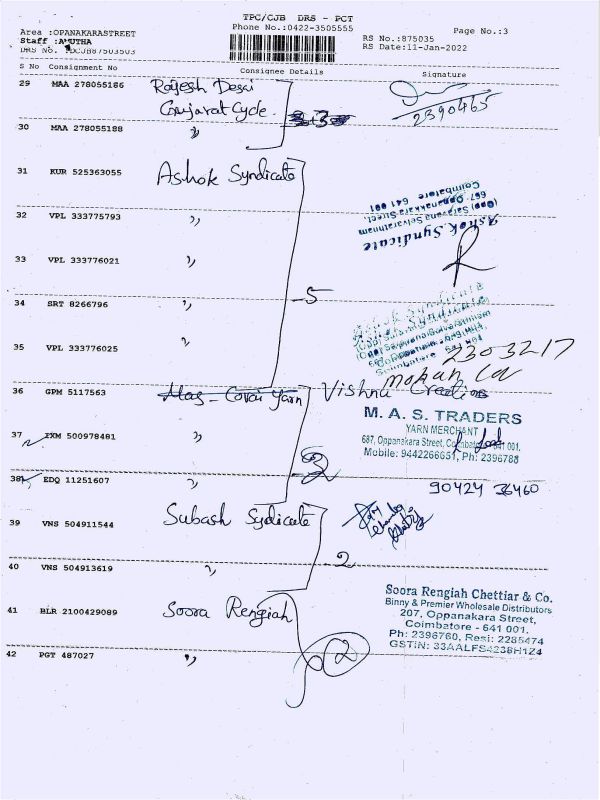 TPC/CJB DRS - PCT
Phone No.:0422-3505555
Area :OPANAKARASTREET
Staff :AMUTHA
DRS No. :DCJB87503503
RS No.:875035
RS Date:11-Jan-2022
Page No.:3
S No Consignment No Consignee Details Signature
29 MAA 278055186 Rajesh Desai
Gujarat Cycle.
2390465
30 MAA 278055188 "
31 KUR 525363055 Ashok Syndicate
32 VPL 333775793 "
Ashok Syndicate
(Opp) Saravana Selvarathnam
667, Oppanakkara Street
Coimbatore 641 001
33 VPL 333776021 "
5
34 SRT 8266796 "
Ashok Syndicate
35 VPL 333776025 "
2303217
mohan
36 GPM 5117563 Mas - Covai Yarn Vishnu Creations
M. A. S. TRADERS
YARN MERCHANT
687, Oppanakara Street, Coimbatore - 641 001.
Mobile: 9442266651, Ph: 2396788
37 IXM 500978481 "
3
38 EDQ 11251607 "
90424 36460
39 VNS 504911544 Subash Sydicate
2
40 VNS 504913619 "
41 BLR 2100429089 Soora Rengiah
Soora Rengiah Chettiar & Co.
Binny & Premier Wholesale Distributors
207, Oppanakara Street,
Coimbatore - 641 001.
Ph: 2396760, Resi: 2285474
GSTIN: 33AALFS4238H1Z4
2
42 PGT 487027 "